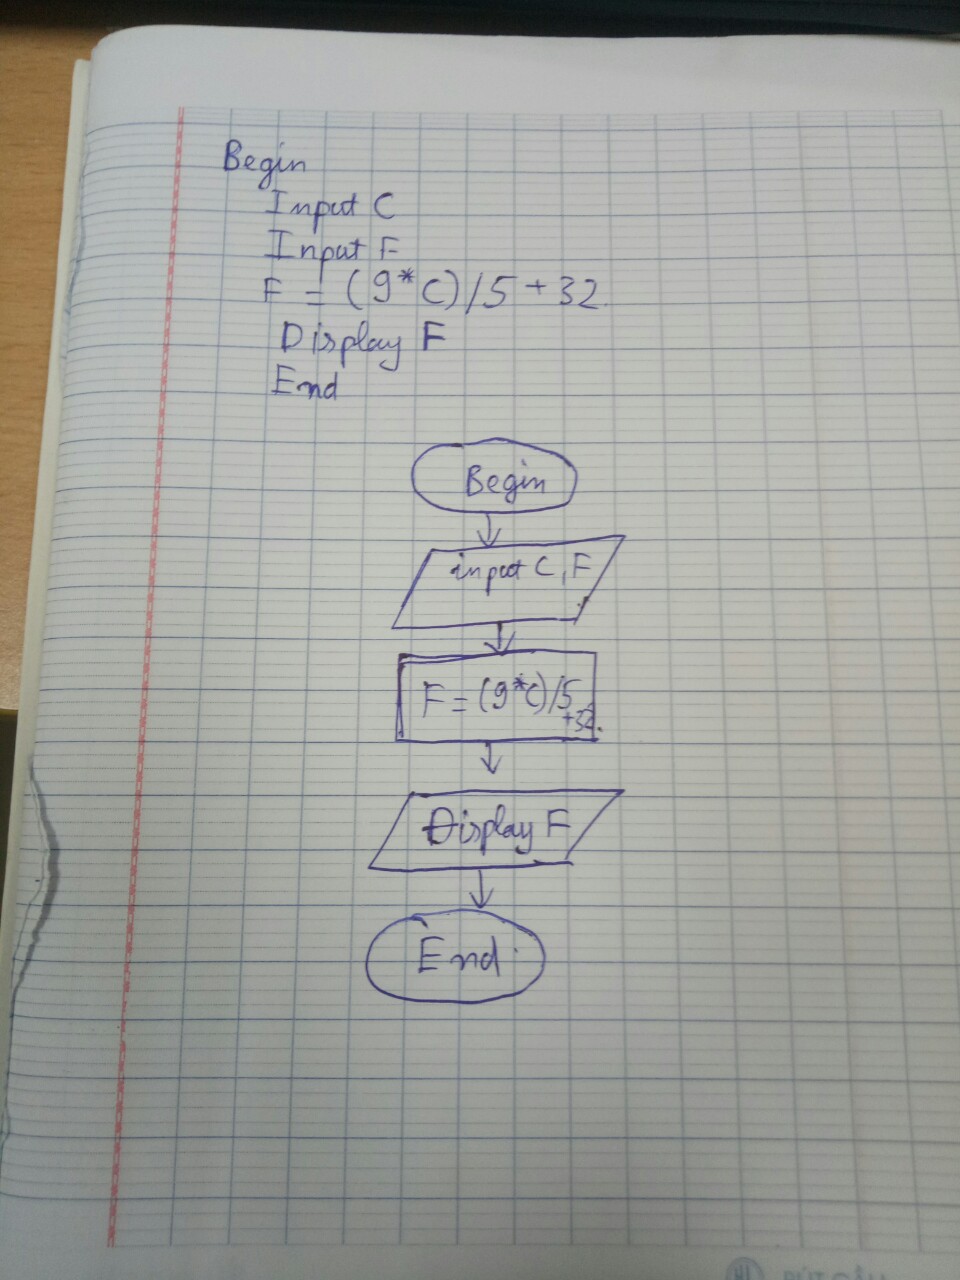 Begin
Input C
Input F
F = (9*C)/5 + 32.
Display F
End
Begin
input C, F
F = (9*C)/5
+32.
Display F
End